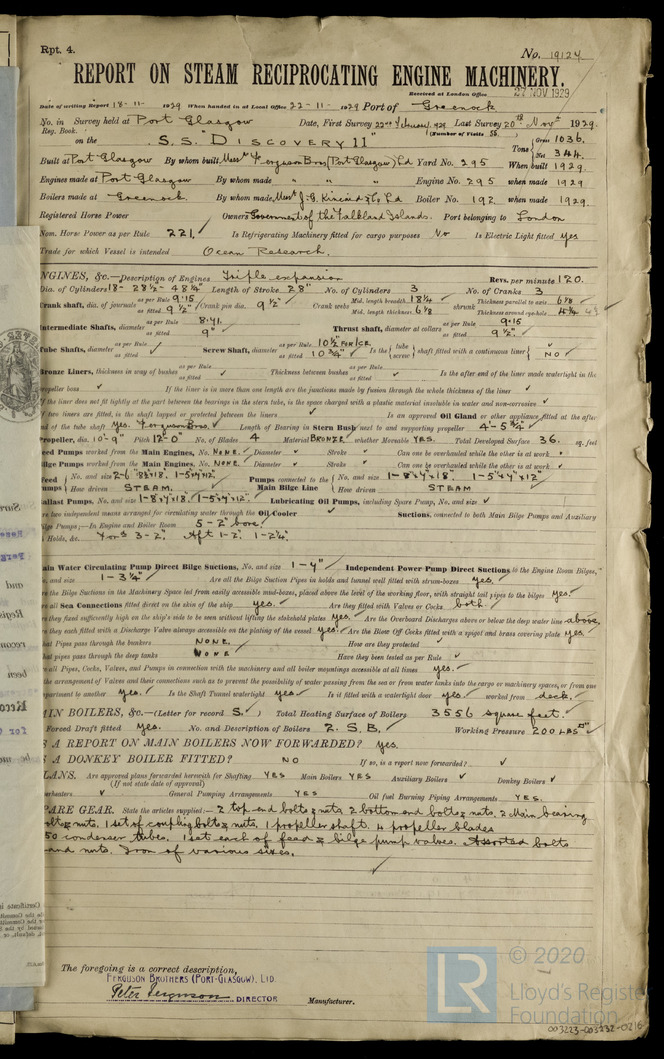 Rpt. 4.
No. 19124
REPORT ON STEAM RECIPROCATING ENGINE MACHINERY.
Received at London Office 27 NOV 1929
Date of writing Report 18-11- 1929 When handed in at Local Office 22-11- 1929 Port of Greenock
No. in Survey held at Port Glasgow Date, First Survey 22nd February, 1929. Last Survey 20th Novr 1929.
Reg. Book. (Number of Visits 56.
on the S.S. "DISCOVERY II" Tons Gross 1036. Net 344.
Built at Port Glasgow By whom built Messrs Ferguson Bros (Port Glasgow) Ld Yard No. 295 When built 1929.
Engines made at Port Glasgow By whom made " " " Engine No. 295 when made 1929
Boilers made at Greenock. By whom made Messrs J. G. Kincaid & Co. Ld Boiler No. 192 when made 1929.
Registered Horse Power Owners Government of the Falkland Islands. Port belonging to London
Nom. Horse Power as per Rule 221. Is Refrigerating Machinery fitted for cargo purposes No Is Electric Light fitted Yes
Trade for which Vessel is intended Ocean Research.
NGINES, &c.—Description of Engines Triple expansion Revs. per minute 120.
Dia. of Cylinders 18- 28½- 48¼" Length of Stroke 28" No. of Cylinders 3 No. of Cranks 3
Crank shaft, dia. of journals as per Rule 9.15 as fitted 9½" Crank pin dia. 9½" Crank webs Mid. length breadth 18¼ Mid. length thickness 6⅛ shrunk Thickness parallel to axis 6⅛ Thickness around eye-hole 4¾
Intermediate Shafts, diameter as per Rule 8.41. as fitted 9" Thrust shaft, diameter at collars as per Rule 9.15 as fitted 9½"
Tube Shafts, diameter as per Rule as fitted Screw Shaft, diameter as per Rule 10½ FOR ICE as fitted 10¾" Is the tube screw shaft fitted with a continuous liner NO
Bronze Liners, thickness in way of bushes as per Rule as fitted Thickness between bushes as per Rule as fitted Is the after end of the liner made watertight in the
ropeller boss If the liner is in more than one length are the junctions made by fusion through the whole thickness of the liner
f the liner does not fit tightly at the part between the bearings in the stern tube, is the space charged with a plastic material insoluble in water and non-corrosive
f two liners are fitted, is the shaft lapped or protected between the liners Is an approved Oil Gland or other appliance fitted at the after
nd of the tube shaft Yes. Ferguson Bros. Length of Bearing in Stern Bush next to and supporting propeller 4'-5¾"
Propeller, dia. 10'-9" Pitch 12'-0" No. of Blades 4 Material BRONZE whether Moveable YES. Total Developed Surface 36. sq. feet
eed Pumps worked from the Main Engines, No. NONE. Diameter Stroke Can one be overhauled while the other is at work
ilge Pumps worked from the Main Engines, No. NONE. Diameter Stroke Can one be overhauled while the other is at work
Feed umps No. and size How driven STEAM. Pumps connected to the Main Bilge Line No. and size 1-8"x9"x18". 1-5"x4"x12" How driven STEAM
allast Pumps, No. and size 1-8"x9"x18. 1-5x4"x12" Lubricating Oil Pumps, including Spare Pump, No. and size
re two independent means arranged for circulating water through the Oil Cooler Suctions, connected to both Main Bilge Pumps and Auxiliary
ilge Pumps;—In Engine and Boiler Room 5-2" bore.
Holds, &c. Ford 3-2". Aft 1-2". 1-2¼".
ain Water Circulating Pump Direct Bilge Suctions, No. and size 1-4" Independent Power Pump Direct Suctions to the Engine Room Bilges,
o. and size 1-3¼" Are all the Bilge Suction Pipes in holds and tunnel well fitted with strum-boxes yes.
re the Bilge Suctions in the Machinery Space led from easily accessible mud-boxes, placed above the level of the working floor, with straight tail pipes to the bilges yes.
re all Sea Connections fitted direct on the skin of the ship yes. Are they fitted with Valves or Cocks both.
re they fixed sufficiently high on the ship's side to be seen without lifting the stokehold plates yes. Are the Overboard Discharges above or below the deep water line above.
re they each fitted with a Discharge Valve always accessible on the plating of the vessel yes. Are the Blow Off Cocks fitted with a spigot and brass covering plate yes.
hat Pipes pass through the bunkers NONE. How are they protected
hat pipes pass through the deep tanks NONE Have they been tested as per Rule
re all Pipes, Cocks, Valves, and Pumps in connection with the machinery and all boiler mountings accessible at all times yes.
the arrangement of Valves and their connections such as to prevent the possibility of water passing from the sea or from water tanks into the cargo or machinery spaces, or from one
partment to another yes. Is the Shaft Tunnel watertight yes. Is it fitted with a watertight door yes. worked from deck.
AIN BOILERS, &c.—(Letter for record S.) Total Heating Surface of Boilers 3556 square feet.
Forced Draft fitted Yes. No. and Description of Boilers 2. S.B. Working Pressure 200 LBS □"
S A REPORT ON MAIN BOILERS NOW FORWARDED? Yes.
S A DONKEY BOILER FITTED? NO If so, is a report now forwarded?
LANS. Are approved plans forwarded herewith for Shafting YES Main Boilers YES Auxiliary Boilers Donkey Boilers
(If not state date of approval)
erheaters General Pumping Arrangements YES Oil fuel Burning Piping Arrangements YES.
PARE GEAR. State the articles supplied:— 2 top end bolts & nuts. 2 bottom end bolts & nuts. 2 Main bearing
olts & nuts. 1 set of coupling bolts & nuts. 1 propeller shaft. 4 propeller blades
50 condenser tubes. 1 set each of feed & bilge pump valves. Assorted bolts
and nuts. Iron of various sizes.
The foregoing is a correct description,
FERGUSON BROTHERS (PORT-GLASGOW), LTD.
Peter Ferguson DIRECTOR Manufacturer.
LR © 2020
Lloyd's Register
Foundation
003223-003232-0216